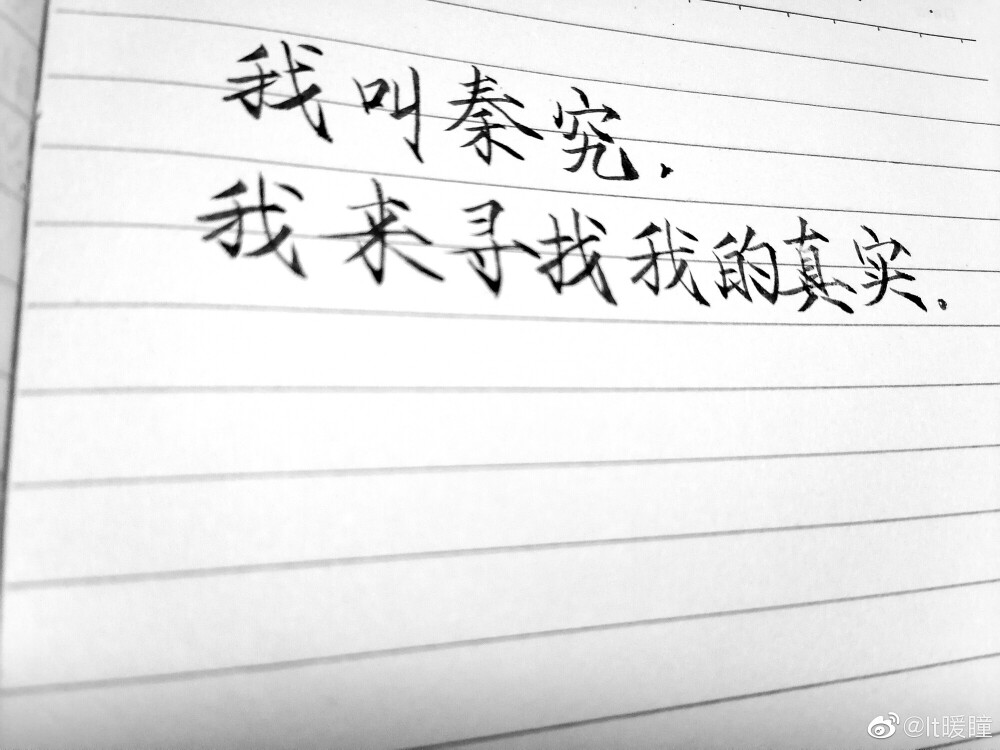 我叫秦究.
我来寻找我的真实.
@lt暖瞳